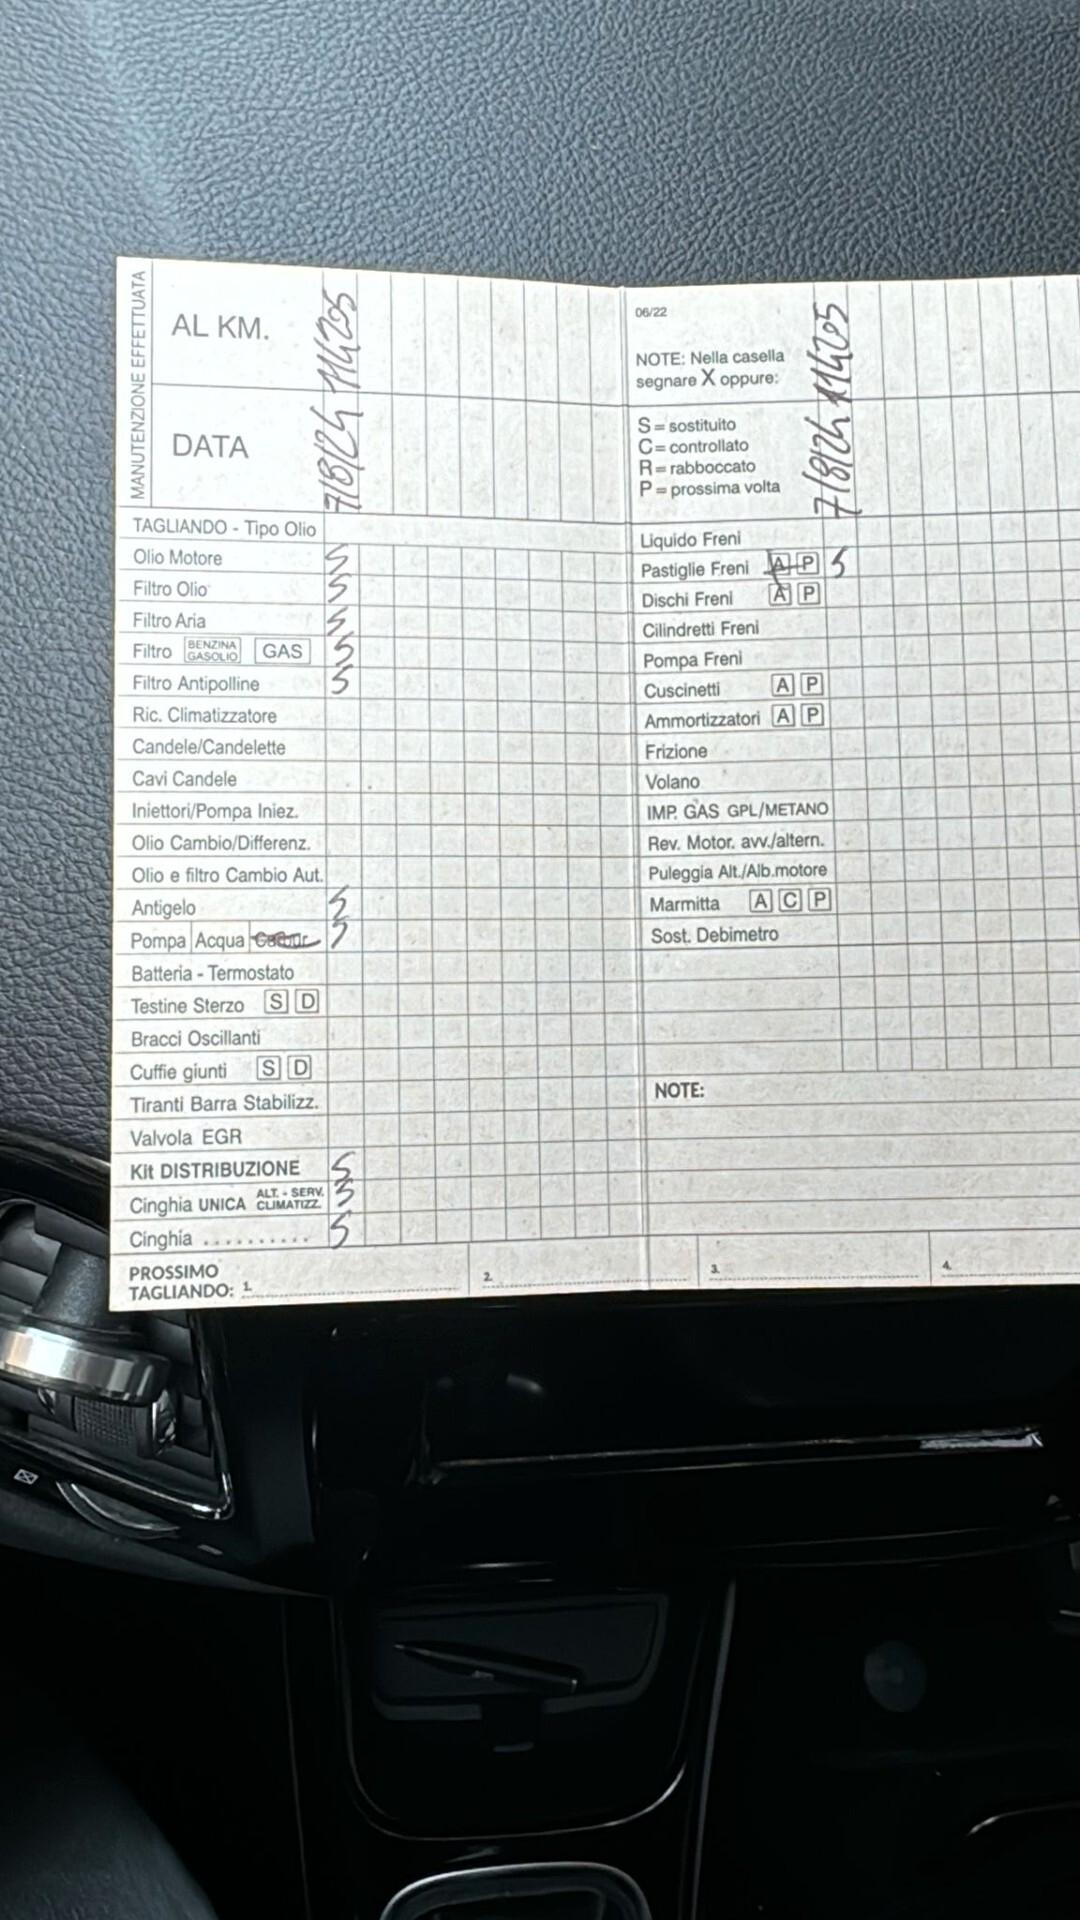 MANUTENZIONE EFFETTUATA
AL KM. 114205
DATA 7/8/24
TAGLIANDO - Tipo Olio
Olio Motore S
Filtro Olio S
Filtro Aria S
Filtro BENZINA GASOLIO GAS S
Filtro Antipolline S
Ric. Climatizzatore
Candele/Candelette
Cavi Candele
Iniettori/Pompa Iniez.
Olio Cambio/Differenz.
Olio e filtro Cambio Aut.
Antigelo S
Pompa Acqua S
Batteria - Termostato
Testine Sterzo S D
Bracci Oscillanti
Cuffie giunti S D
Tiranti Barra Stabilizz.
Valvola EGR
Kit DISTRIBUZIONE S
Cinghia UNICA ALT. - SERV. CLIMATIZZ. S
Cinghia .......... S
PROSSIMO
TAGLIANDO: 1. 2. 3. 4.
06/22
NOTE: Nella casella
segnare X oppure:
S = sostituito
C = controllato
R = rabboccato
P = prossima volta
7/8/24 114205
Liquido Freni
Pastiglie Freni A P S
Dischi Freni A P
Cilindretti Freni
Pompa Freni
Cuscinetti A P
Ammortizzatori A P
Frizione
Volano
IMP. GAS GPL/METANO
Rev. Motor. avv./altern.
Puleggia Alt./Alb.motore
Marmitta A C P
Sost. Debimetro
NOTE: